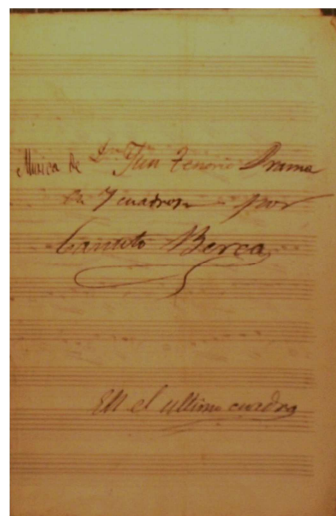 Musica de Dn Juan Tenorio Drama
en 7 cuadros por
Canuto Berea
En el ultimo cuadro